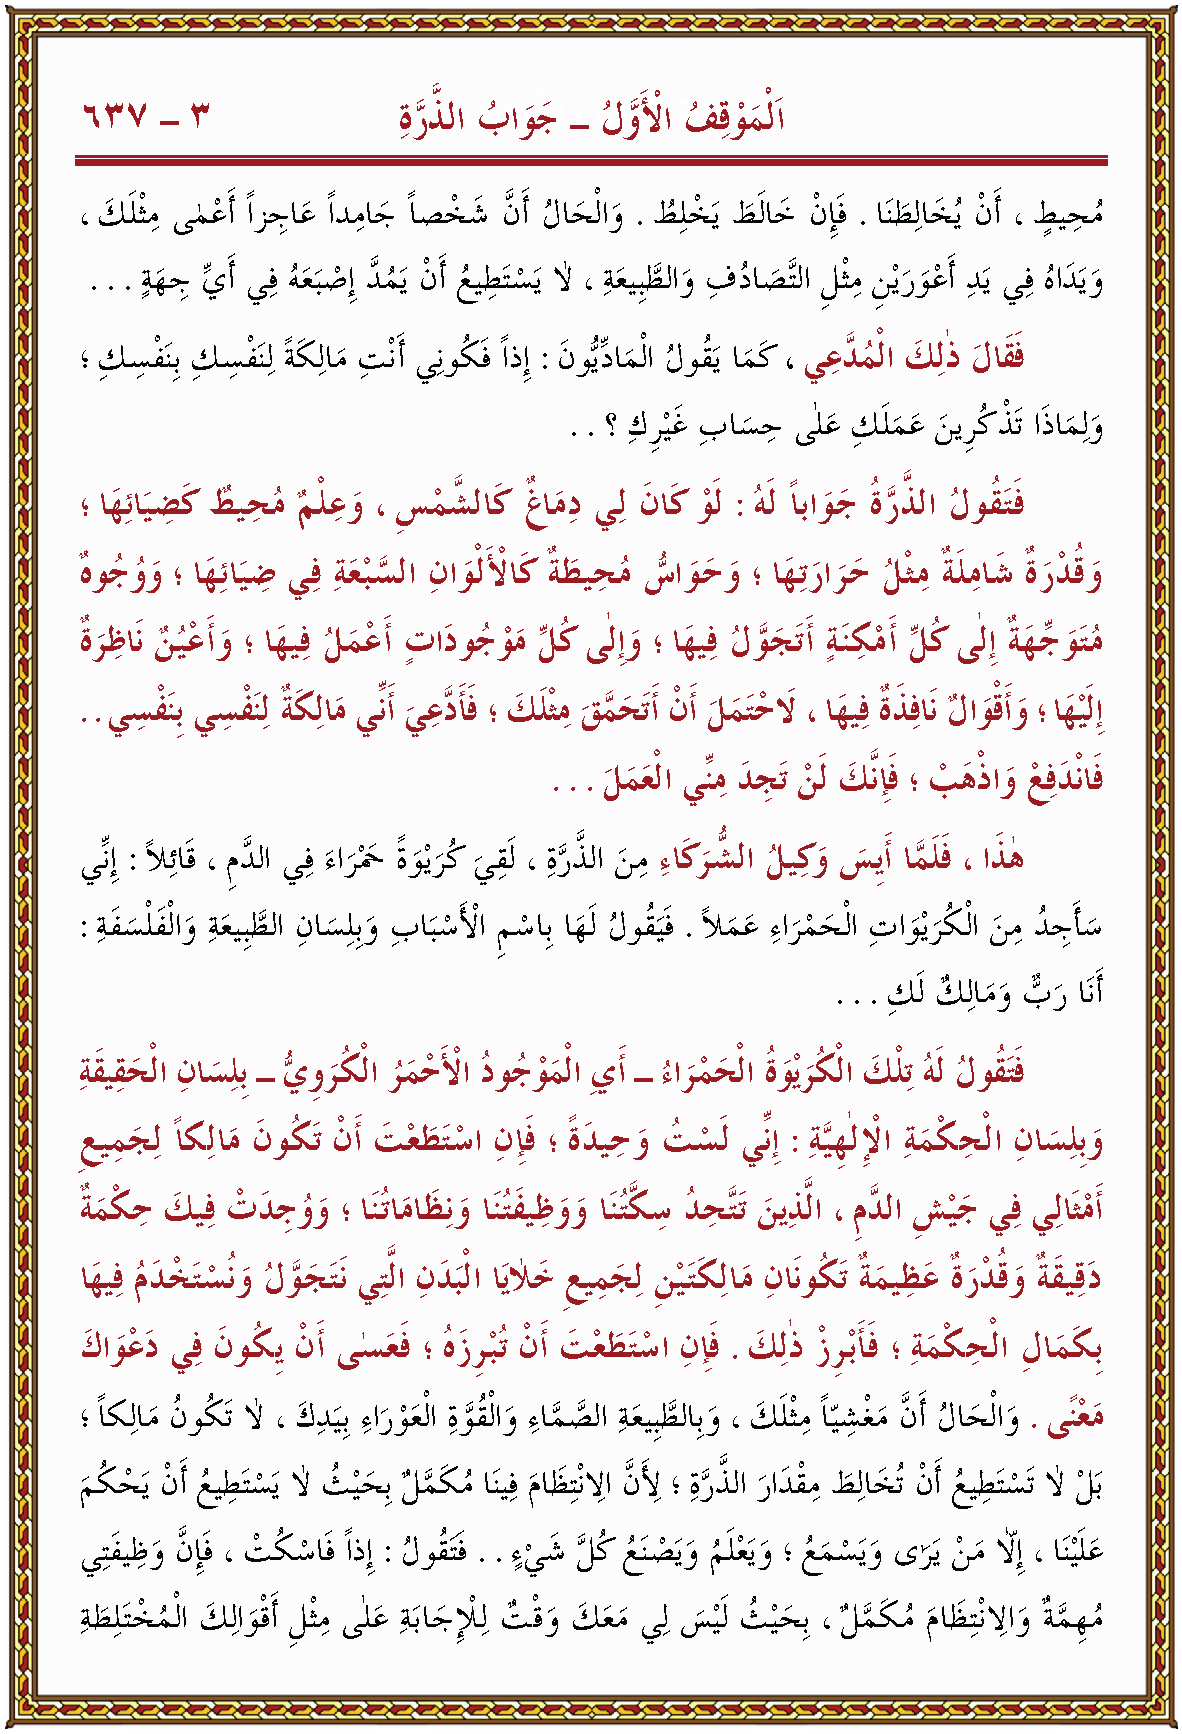 اَلْمَوْقِفُ الْأَوَّلُ ـ جَوَابُ الذَّرَّةِ
٣ ـ ٦٣٧
مُحِيطٍ ، أَنْ يُخَالِطَنَا . فَإِنْ خَالَطَ يَخْلِطُ . وَالْحَالُ أَنَّ شَخْصاً جَامِداً عَاجِزاً أَعْمٰى مِثْلَكَ ،
وَيَدَاهُ فِي يَدِ أَعْوَرَيْنِ مِثْلِ التَّصَادُفِ وَالطَّبِيعَةِ ، لاٰ يَسْتَطِيعُ أَنْ يُمَدَّ إِصْبَعَهُ فِي أَيِّ جِهَةٍ . . .
فَقَالَ ذٰلِكَ الْمُدَّعِي ، كَمَا يَقُولُ الْمَادِّيُّونَ : إِذاً فَكُونِي أَنْتِ مَالِكَةً لِنَفْسِكِ بِنَفْسِكِ ؛
وَلِمَاذَا تَذْكُرِينَ عَمَلَكِ عَلٰى حِسَابِ غَيْرِكِ ؟ . .
فَتَقُولُ الذَّرَّةُ جَوَاباً لَهُ : لَوْ كَانَ لِي دِمَاغٌ كَالشَّمْسِ ، وَعِلْمٌ مُحِيطٌ كَضِيَائِهَا ؛
وَقُدْرَةٌ شَامِلَةٌ مِثْلُ حَرَارَتِهَا ؛ وَحَوَاسُّ مُحِيطَةٌ كَالْأَلْوَانِ السَّبْعَةِ فِي ضِيَائِهَا ؛ وَوُجُوهٌ
مُتَوَجِّهَةٌ إِلٰى كُلِّ أَمْكِنَةٍ أَتَجَوَّلُ فِيهَا ؛ وَإِلٰى كُلِّ مَوْجُودَاتٍ أَعْمَلُ فِيهَا ؛ وَأَعْيُنٌ نَاظِرَةٌ
إِلَيْهَا ؛ وَأَقْوَالٌ نَافِذَةٌ فِيهَا ، لَاحْتَمَلَ أَنْ أَتَحَمَّقَ مِثْلَكَ ؛ فَأَدَّعِيَ أَنِّي مَالِكَةٌ لِنَفْسِي بِنَفْسِي . .
فَانْدَفِعْ وَاذْهَبْ ؛ فَإِنَّكَ لَنْ تَجِدَ مِنِّي الْعَمَلَ . . .
هٰذَا ، فَلَمَّا أَيِسَ وَكِيلُ الشُّرَكَاءِ مِنَ الذَّرَّةِ ، لَقِيَ كُرَيْوَةً حَمْرَاءَ فِي الدَّمِ ، قَائِلاً : إِنِّي
سَأَجِدُ مِنَ الْكُرَيْوَاتِ الْحَمْرَاءِ عَمَلاً . فَيَقُولُ لَهَا بِاسْمِ الْأَسْبَابِ وَبِلِسَانِ الطَّبِيعَةِ وَالْفَلْسَفَةِ :
أَنَا رَبٌّ وَمَالِكٌ لَكِ . . .
فَتَقُولُ لَهُ تِلْكَ الْكُرَيْوَةُ الْحَمْرَاءُ ـ أَيِ الْمَوْجُودُ الْأَحْمَرُ الْكُرَوِيُّ ـ بِلِسَانِ الْحَقِيقَةِ
وَبِلِسَانِ الْحِكْمَةِ الْإِلٰهِيَّةِ : إِنِّي لَسْتُ وَحِيدَةً ؛ فَإِنِ اسْتَطَعْتَ أَنْ تَكُونَ مَالِكاً لِجَمِيعِ
أَمْثَالِي فِي جَيْشِ الدَّمِ ، الَّذِينَ تَتَّحِدُ سِكَّتُنَا وَوَظِيفَتُنَا وَنِظَامَاتُنَا ؛ وَوُجِدَتْ فِيكَ حِكْمَةٌ
دَقِيقَةٌ وَقُدْرَةٌ عَظِيمَةٌ تَكُونَانِ مَالِكَتَيْنِ لِجَمِيعِ خَلاٰيَا الْبَدَنِ الَّتِي نَتَجَوَّلُ وَنُسْتَخْدَمُ فِيهَا
بِكَمَالِ الْحِكْمَةِ ؛ فَأَبْرِزْ ذٰلِكَ . فَإِنِ اسْتَطَعْتَ أَنْ تُبْرِزَهُ ؛ فَعَسٰى أَنْ يَكُونَ فِي دَعْوَاكَ
مَعْنًى . وَالْحَالُ أَنَّ مَغْشِيّاً مِثْلَكَ ، وَبِالطَّبِيعَةِ الصَّمَّاءِ وَالْقُوَّةِ الْعَوْرَاءِ بِيَدِكَ ، لاٰ تَكُونُ مَالِكاً ؛
بَلْ لاٰ تَسْتَطِيعُ أَنْ تُخَالِطَ مِقْدَارَ الذَّرَّةِ ؛ لِأَنَّ الِانْتِظَامَ فِينَا مُكَمَّلٌ بِحَيْثُ لاٰ يَسْتَطِيعُ أَنْ يَحْكُمَ
عَلَيْنَا ، إِلاَّ مَنْ يَرٰى وَيَسْمَعُ ؛ وَيَعْلَمُ وَيَصْنَعُ كُلَّ شَيْءٍ . . فَتَقُولُ : إِذاً فَاسْكُتْ ، فَإِنَّ وَظِيفَتِي
مُهِمَّةٌ وَالِانْتِظَامَ مُكَمَّلٌ ، بِحَيْثُ لَيْسَ لِي مَعَكَ وَقْتٌ لِلْإِجَابَةِ عَلٰى مِثْلِ أَقْوَالِكَ الْمُخْتَلِطَةِ